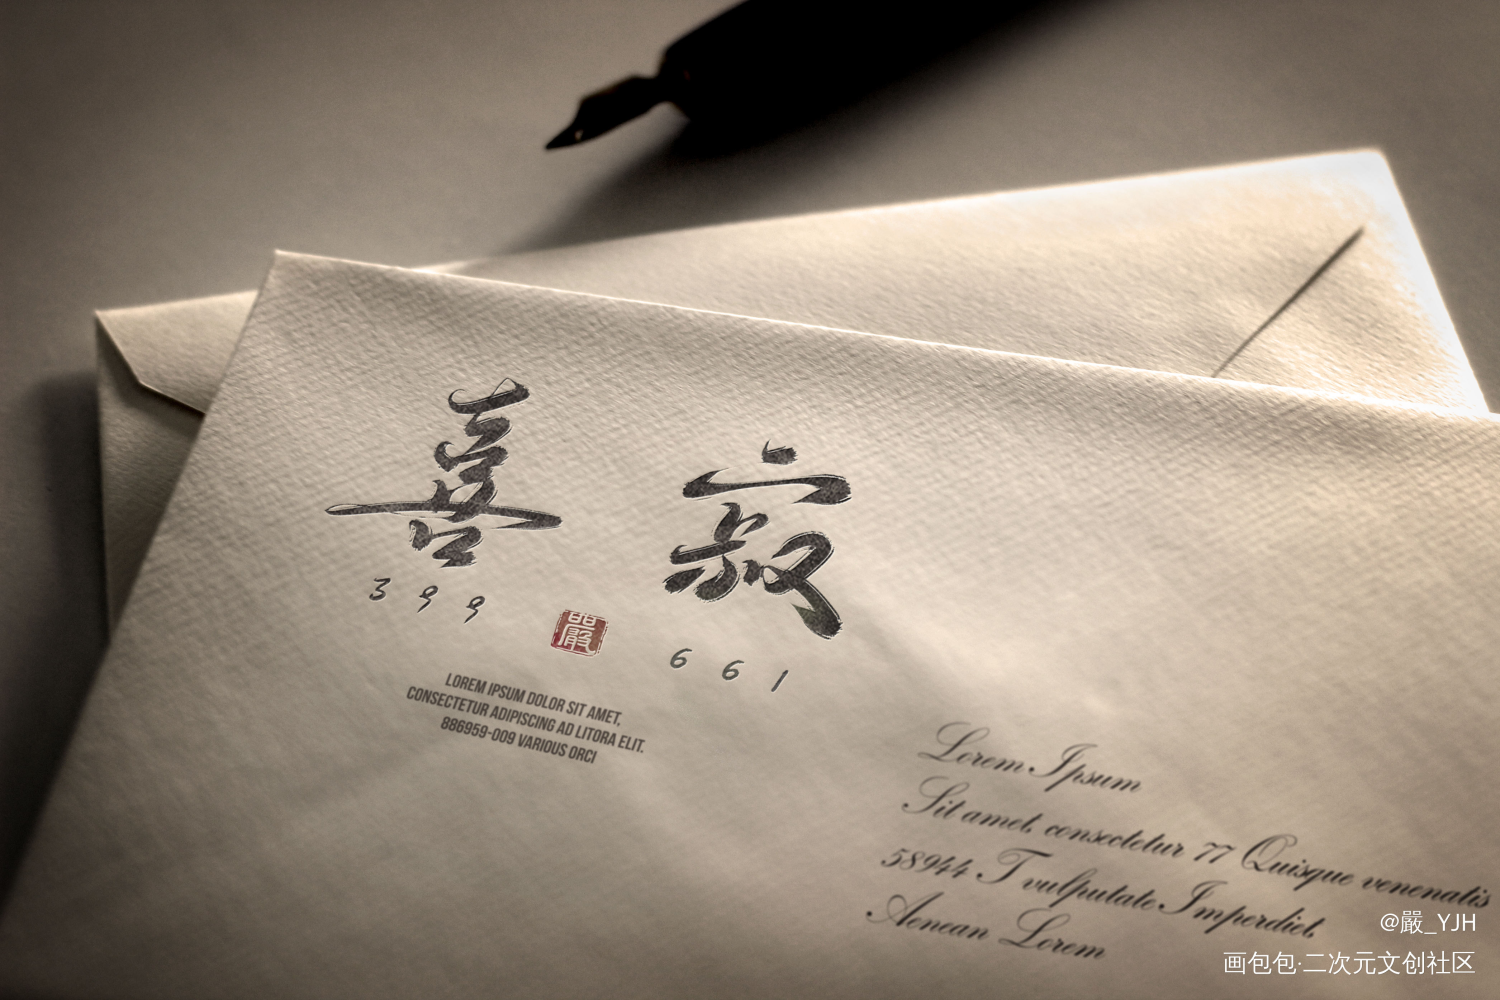 喜 寂
399
嚴
661
LOREM IPSUM DOLOR SIT AMET,
CONSECTETUR ADIPISCING AD LITORA ELIT.
886959-009 VARIOUS ORCI
Lorem Ipsum
Sit amet, consectetur 77 Quisque venenatis
58944 T vulputate Imperdiet,
Aenean Lorem
@嚴_YJH
画包包·二次元文创社区